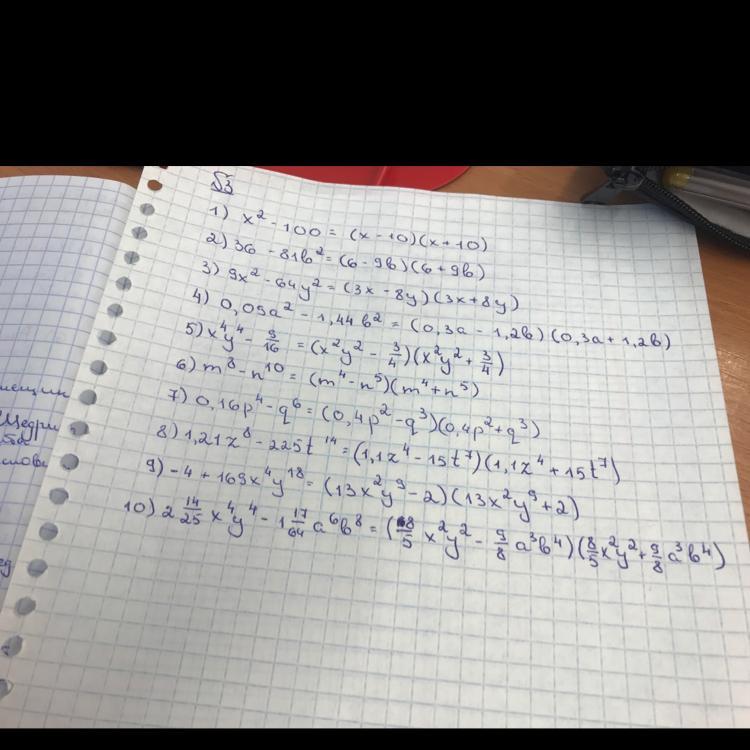 √3
1) x² - 100 = (x - 10)(x + 10)
2) 36 - 81b² = (6 - 9b)(6 + 9b)
3) 9x² - 64y² = (3x - 8y)(3x + 8y)
4) 0,09a² - 1,44b² = (0,3a - 1,2b)(0,3a + 1,2b)
5) x⁴y⁴ - 9/16 = (x²y² - 3/4)(x²y² + 3/4)
6) m⁸ - n¹⁰ = (m⁴ - n⁵)(m⁴ + n⁵)
7) 0,16p⁴ - q⁶ = (0,4p² - q³)(0,4p² + q³)
8) 1,21z⁸ - 225t¹⁴ = (1,1z⁴ - 15t⁷)(1,1z⁴ + 15t⁷)
9) -4 + 169x⁴y¹⁸ = (13x²y⁹ - 2)(13x²y⁹ + 2)
10) 2 14/25 x⁴y⁴ - 1 17/64 a⁶b⁸ = (8/5 x²y² - 9/8 a³b⁴)(8/5 x²y² + 9/8 a³b⁴)